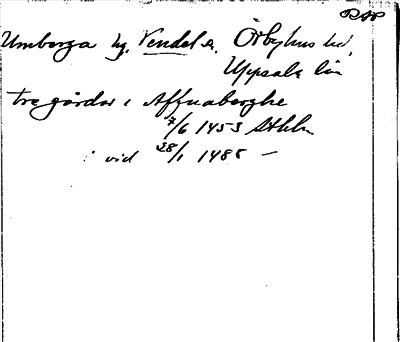 RAP
Umberga by, Vendel s. Örbyhus hd,
Uppsala län
tre gårdar i Affuaberghe
7/6 1453 Sthlm
i vid 28/1 1488 —